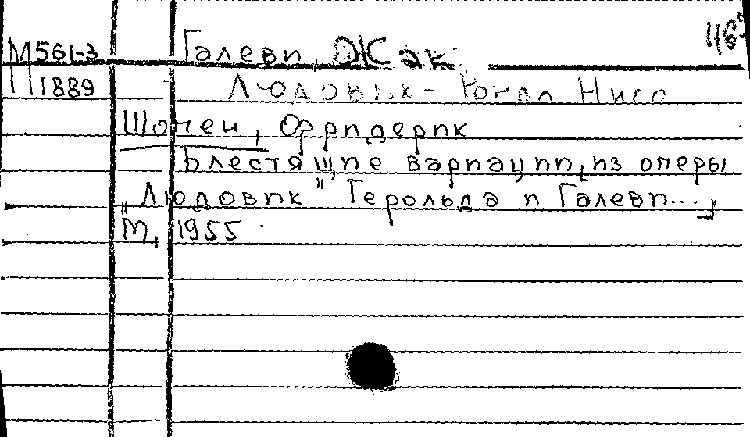 М561-3 Галеви, Жак
М1889 Людовик-
Шопен, Фридерик
Блестящие вариации, из оперы
"Людовик" Герольда и Галеви...,
М, 1955